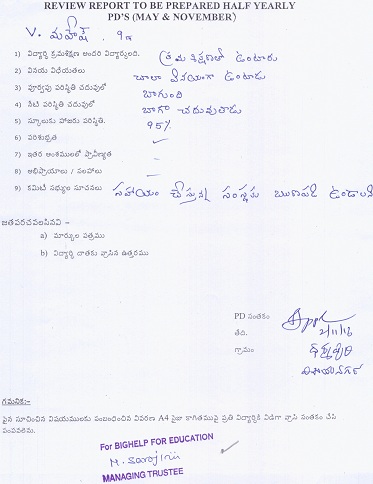 REVIEW REPORT TO BE PREPARED HALF YEARLY
PD'S (MAY & NOVEMBER)
V. మహేష్. 9వ
1) విద్యార్థి క్రమశిక్షణ అందరి విద్యార్థులది. క్రమశిక్షణతో ఉంటారు
2) వినయ విధేయతలు చాలా వినయంగా ఉంటాడు
3) పూర్వపు పరిస్థితి చదువులో బాగుంది
4) నేటి పరిస్థితి చదువులో బాగా చదువుతాడు
5) స్కూలుకు హాజరు పరిస్థితి. 95%
6) పరిశుభ్రత
7) ఇతర అంశములలో ప్రావీణ్యత
8) అభిప్రాయాలు / సలహాలు
9) కమిటీ సభ్యుల సూచనలు సహాయం చేస్తున్న సంస్థకు ఋణపడి ఉండాలి
జతపరచవలసినవి –
a) మార్కుల పత్రము
b) విద్యార్థి దాతకు వ్రాసిన ఉత్తరము
PD సంతకం
తేది. 2/11/16
గ్రామం ధర్మపురి
విజయనగరం
గమనిక:-
పైన సూచించిన విషయములకు సంబంధించిన వివరణ A4 సైజు కాగితముపై ప్రతి విద్యార్థికి విడిగా వ్రాసి సంతకం చేసి
పంపవలెను.
For BIGHELP FOR EDUCATION
M. Sarojini
MANAGING TRUSTEE